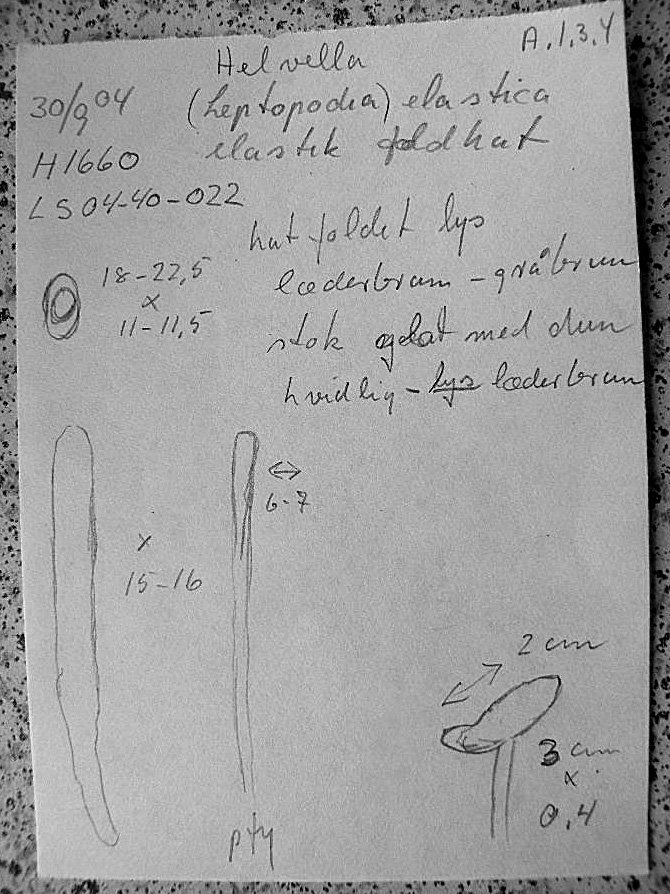 A.1.3.4
Helvella
30/9 04 (Leptopodia) elastica
H1660 elastik foldhat
LS04-40-022
hat foldet lys
læderbrun - gråbrun
18-22,5
x
11-11,5
stok glat med dun
hvidlig - lys læderbrun
6-7
x
15-16
2 cm
3 cm
x
0,4